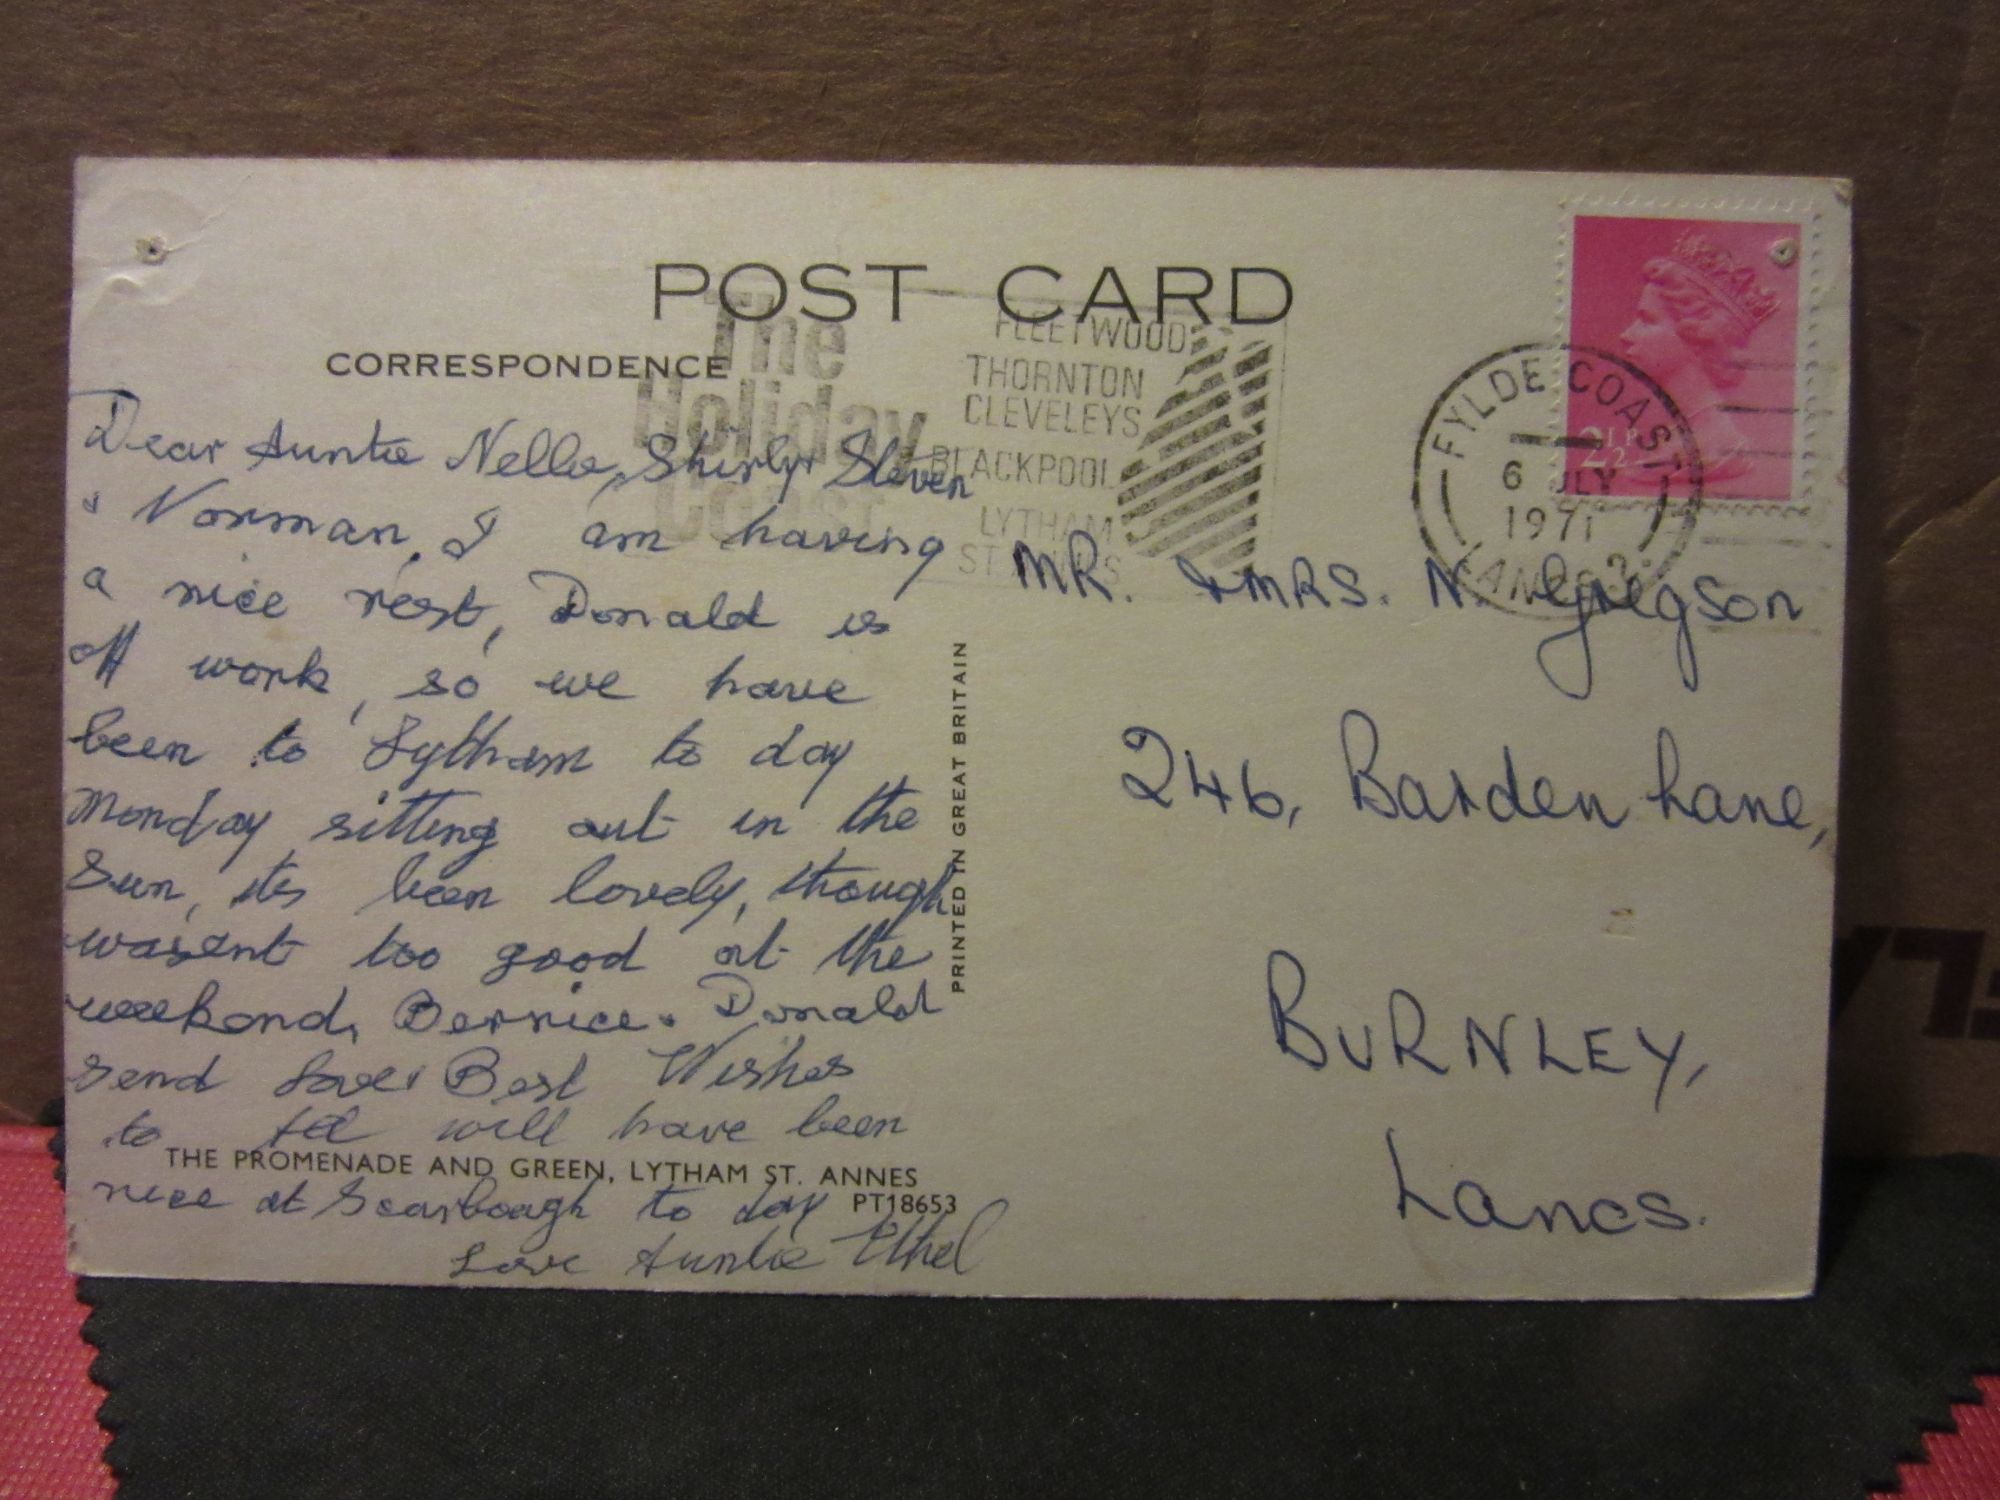 POST CARD
CORRESPONDENCE
The
Holiday
Coast
FLEETWOOD
THORNTON
CLEVELEYS
BLACKPOOL
LYTHAM
ST. ANNES
FYLDE COAST
6 JLY
1971
LANCS
2½P
Dear Auntie Nellie, Shirly + Steven
+ Norman, I am having
a nice rest, Donald is
off work, so we have
been to Lytham to day
Monday sitting out in the
Sun, its been lovely, though
wasent too good at the
weekend, Bernice + Donald
send Love + Best Wishes
to will have been
THE PROMENADE AND GREEN, LYTHAM ST. ANNES
nice at Scarboough to day
PT18653
Love Auntie Ethel
PRINTED IN GREAT BRITAIN
MR. & MRS. N. Gregson
246, Barden Lane,
BURNLEY,
Lancs.